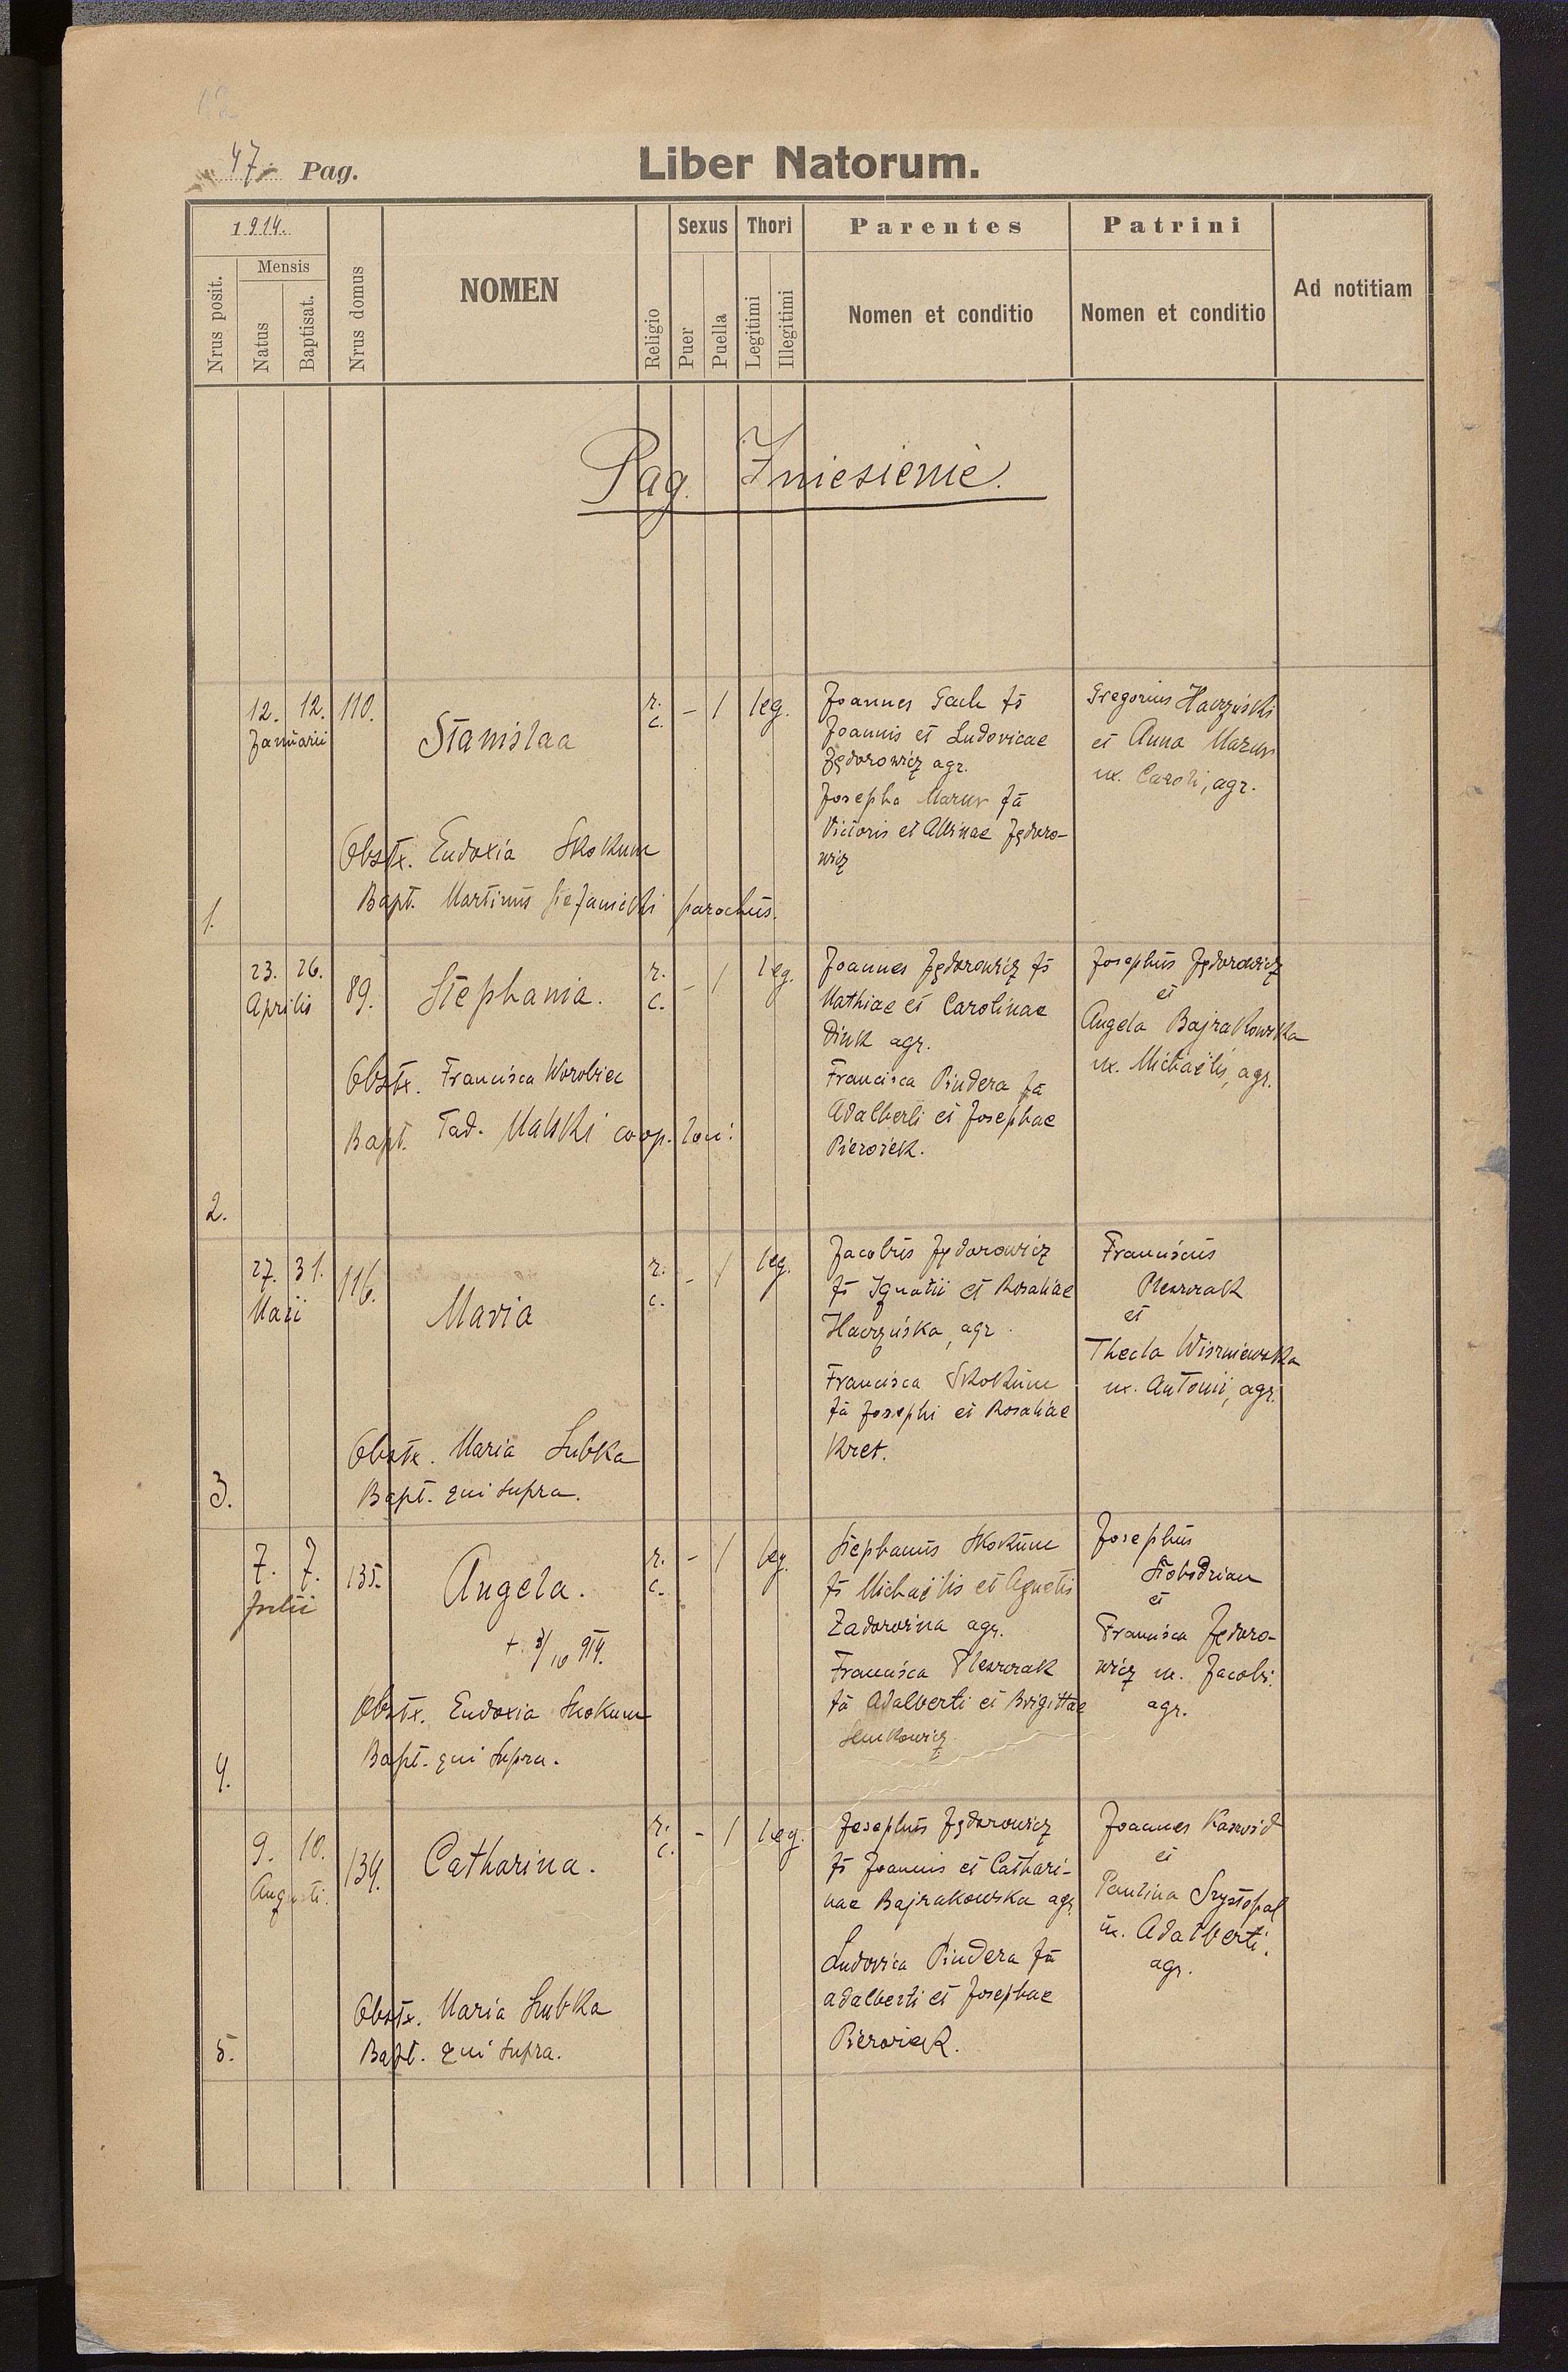 12
47. Pag.
Liber Natorum.
1914.
Mensis
Nrus posit.
Natus
Baptisat.
Nrus domus
NOMEN
Religio
Sexus
Puer
Puella
Thori
Legitimi
Illegitimi
Parentes
Nomen et conditio
Patrini
Nomen et conditio
Ad notitiam
Pag. Zniesienie.
1.
12. 12.
Januarii
110.
Stanislaa
r.
c.
- 1 leg.
Joannes Gach fs
Joannis et Ludovicae
Jędorowicz agr.
Josepha Mazur fa
Victoris et Albinae Jędoro-
wicz
Gregorius Haczyński
et Anna Mazur
ux. Caroli, agr.
Obstx. Eudoxia Skokun
Bapt. Martinus parochus.
2.
23. 26.
Aprilis
89.
Stephania.
r.
c.
- 1 leg.
Joannes Jędorowicz fs
Mathiae et Carolinae
Dink agr.
Francisca Pindera fa
Adalberti et Josephae
Josephus Jędorowicz
et
Angela Bajrakowska
ux. Michaëlis, agr.
Obstx. Francisca Worobiec
Bapt. Tad. Malski coop.
3.
27. 31.
Maii
116.
Maria
r.
c.
- 1 leg.
Jacobus Jędorowicz
fs Ignatii et Rosaliae
Haczyńska, agr.
Francisca Skokun
fa Josephi et Rosaliae
Kret.
Franciscus
et
Thecla Wiszniewska
ux. Antonii, agr.
Obstx. Maria Łubka
Bapt. qui supra.
4.
7. 7.
Julii
135.
Angela.
+ 3/10 914.
r.
c.
- 1 leg.
Stephanus Skokun
fs Michaëlis et Agnetis
agr.
Francisca
fa Adalberti et Brigittae
Senkowicz
Josephus
et
Francisca Jędoro-
wicz ux. Jacobi.
agr.
Obstx. Eudoxia Skokun
Bapt. qui supra.
5.
9. 10.
Augusti.
139.
Catharina.
r.
c.
- 1 leg.
Josephus Jędorowicz
fs Joannis et Cathari-
nae Bajrakowska agr
Ludovica Pindera fa
Adalberti et Josephae
Joannes
et
Paulina Szystopal
ux. Adalberti.
agr.
Obstx. Maria Łubka
Bapt. qui supra.